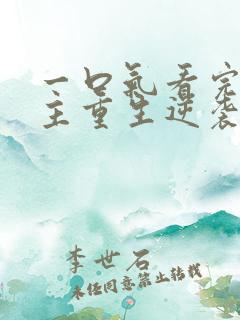 一口氣看完
主重生逆袭
李世石
未经同意禁止转载